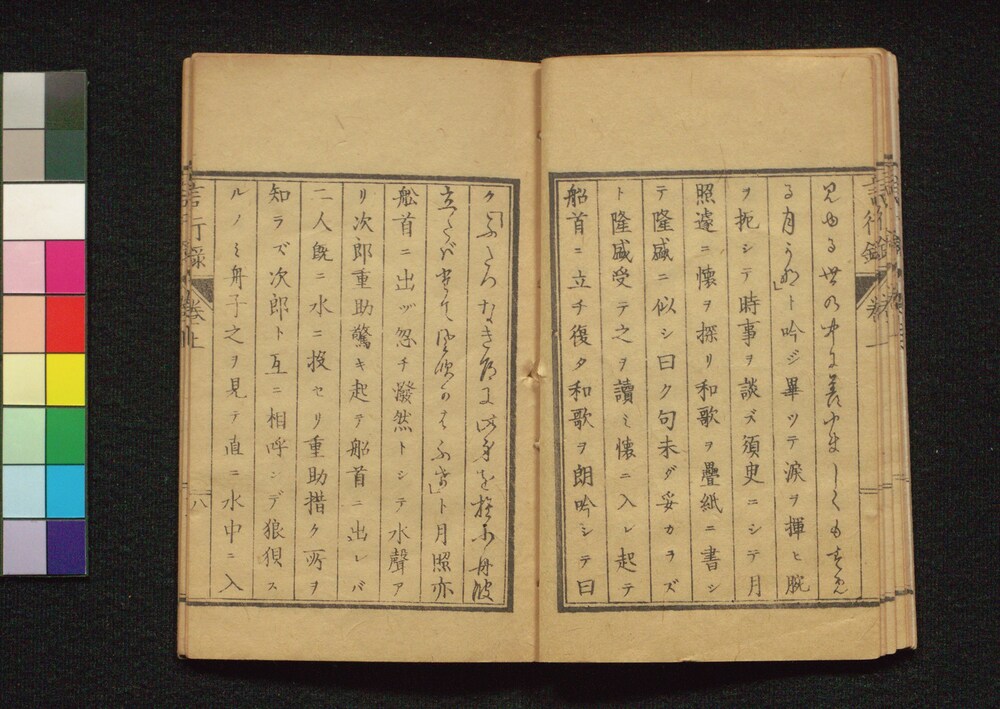 言行録 卷上
見ゆる世の中に羨ましくもすめ
る月かな」ト吟ジ畢ツテ涙ヲ揮ヒ腕
ヲ扼シテ時事ヲ談ズ須臾ニシテ月
照遽ニ懷ヲ探リ和歌ヲ疊紙ニ書シ
テ隆盛ニ似シ曰ク句未ダ妥カヲズ
ト隆盛受テ之ヲ讀ミ懷ニ入レ起テ
船首ニ立チ復タ和歌ヲ朗吟シテ曰
ク「ふたつなき道に此身を捨小舟波
立たばとて風吹かばふけ」ト月照亦
舩首ニ出ヅ忽チ潑然トシテ水聲ア
リ次郎重助驚キ起テ船首ニ出レバ
二人既ニ水ニ投セリ重助措ク所ヲ
知ラズ次郎ト互ニ相呼ンデ狼狽ス
ルノミ舟子之ヲ見テ直ニ水中ニ入
言行録 卷上 八